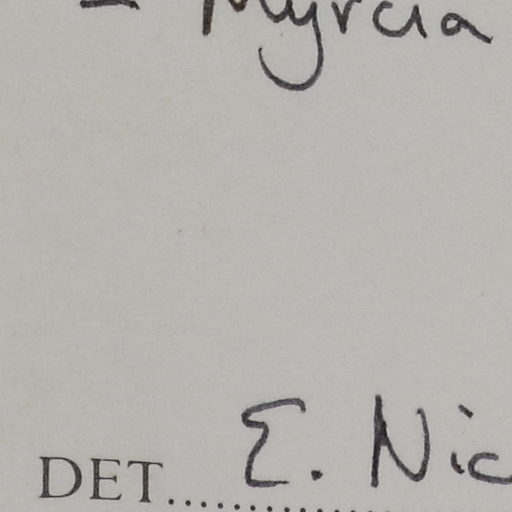 = Myrcia
DET........... E. Nic